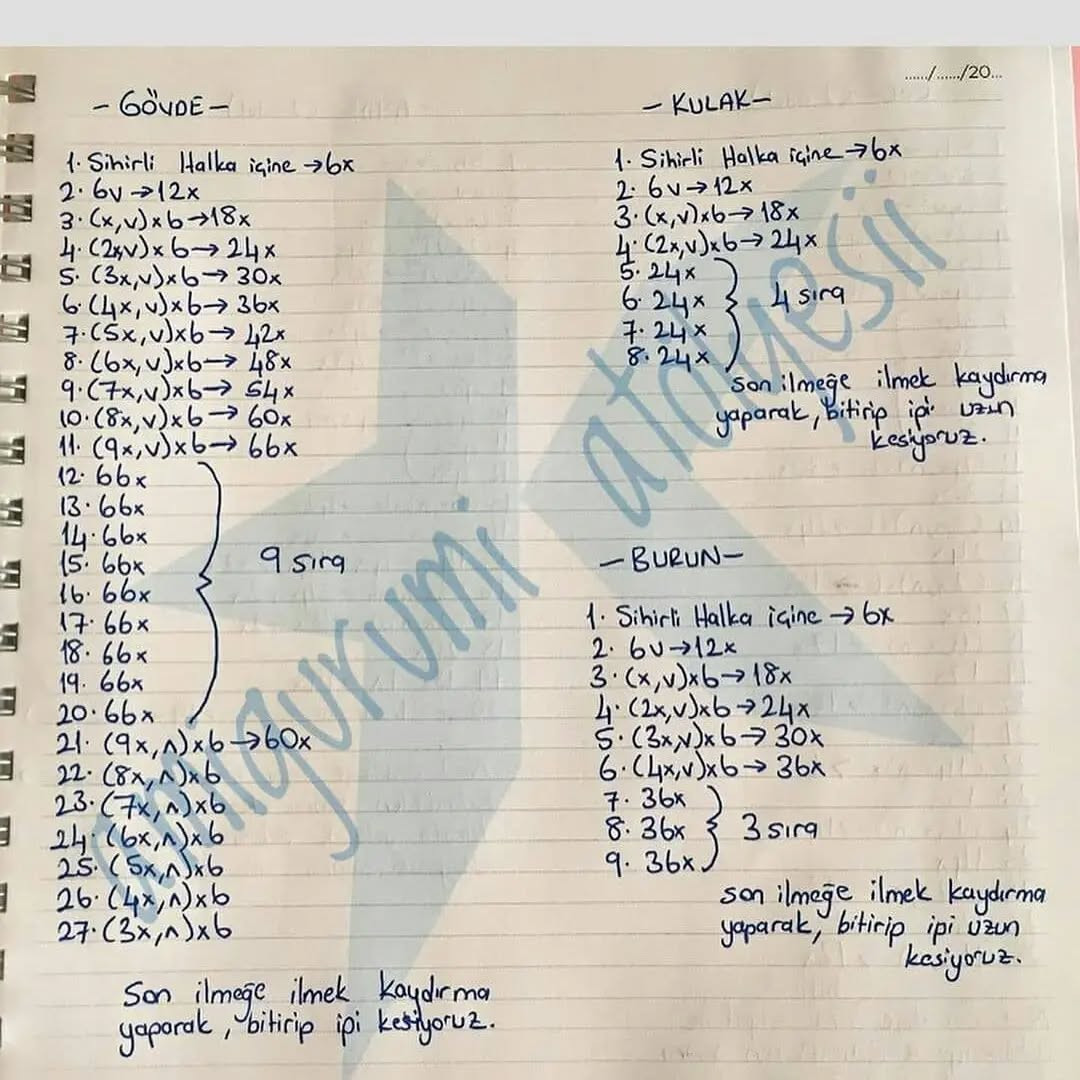 ....../....../20...
- GÖVDE -
1. Sihirli Halka içine → 6x
2. 6v → 12x
3. (x,v)x6 → 18x
4. (2x,v)x6 → 24x
5. (3x,v)x6 → 30x
6. (4x,v)x6 → 36x
7. (5x,v)x6 → 42x
8. (6x,v)x6 → 48x
9. (7x,v)x6 → 54x
10. (8x,v)x6 → 60x
11. (9x,v)x6 → 66x
12. 66x
13. 66x
14. 66x
15. 66x
16. 66x
17. 66x
18. 66x
19. 66x
20. 66x
9 sıra
21. (9x,ʌ)x6 → 60x
22. (8x,ʌ)x6
23. (7x,ʌ)x6
24. (6x,ʌ)x6
25. (5x,ʌ)x6
26. (4x,ʌ)x6
27. (3x,ʌ)x6
Son ilmeğe ilmek kaydırma
yaparak, bitirip ipi kesiyoruz.
- KULAK -
1. Sihirli Halka içine → 6x
2. 6v → 12x
3. (x,v)x6 → 18x
4. (2x,v)x6 → 24x
5. 24x
6. 24x
7. 24x
8. 24x
4 sıra
son ilmeğe ilmek kaydırma
yaparak, bitirip ipi uzun
kesiyoruz.
- BURUN -
1. Sihirli Halka içine → 6x
2. 6v → 12x
3. (x,v)x6 → 18x
4. (2x,v)x6 → 24x
5. (3x,v)x6 → 30x
6. (4x,v)x6 → 36x
7. 36x
8. 36x
9. 36x
3 sıra
son ilmeğe ilmek kaydırma
yaparak, bitirip ipi uzun
kesiyoruz.
amigurumi atolyesii